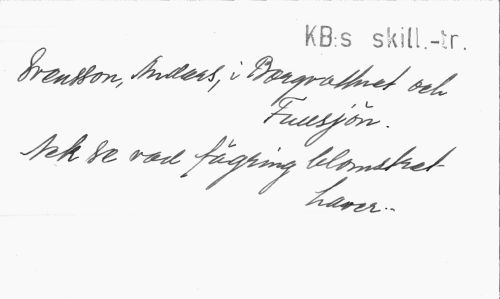 KB:s skill.-tr.
Svensson, Anders, i Borgvattnet och
Fuusjön.
Ack se vad fägring blomstret
haver..